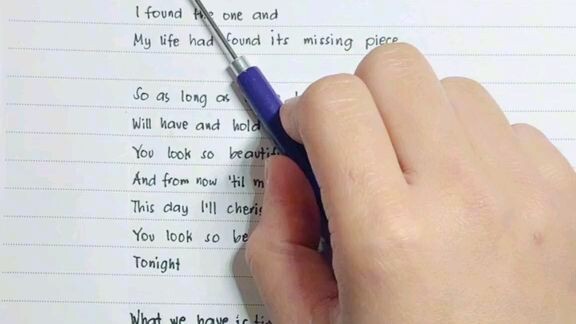 I found the one and
My life had found its missing piece
So as long as
Will have and hold
You look so
And from now 'til
This day I'll
You look so
Tonight
What we have is